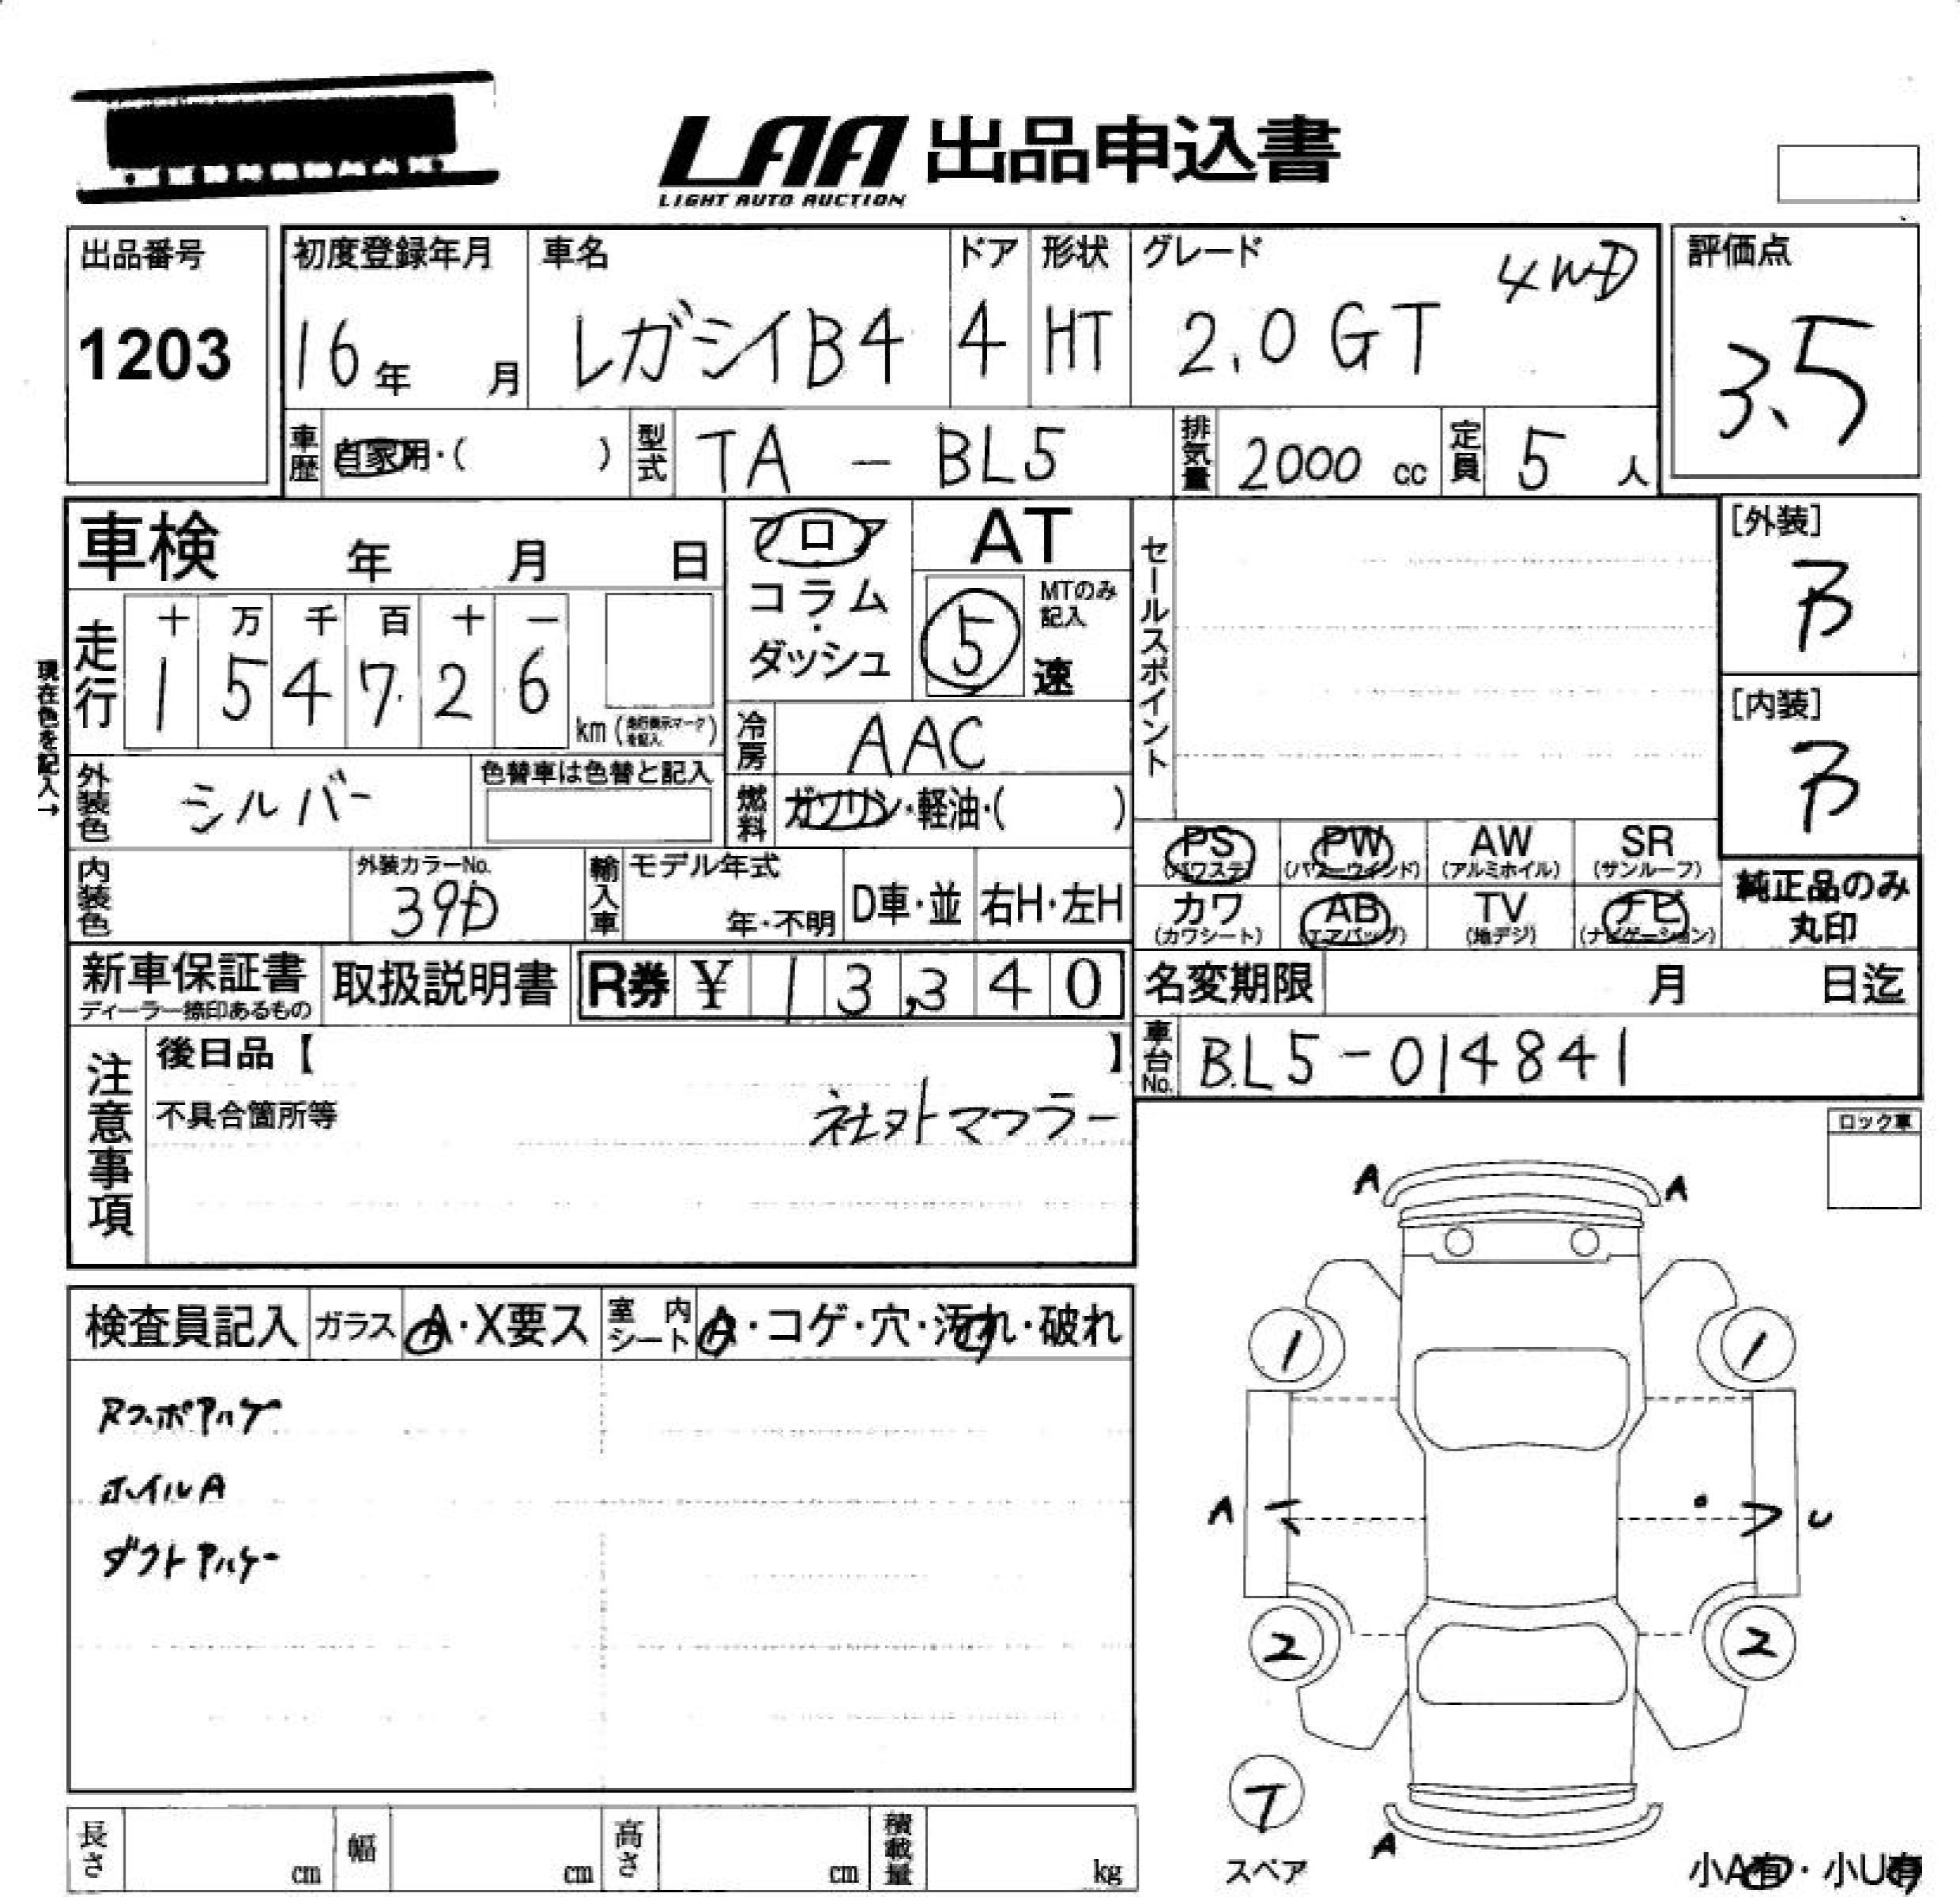 LAA 出品申込書
LIGHT AUTO AUCTION
出品番号
1203
初度登録年月
16年 月
車名
レガシイB4
ドア
4
形状
HT
グレード
4WD
2.0GT
評価点
3.5
車歴 自家用・( )
型式 TA - BL5
排気量 2000 cc
定員 5 人
車検 年 月 日
フロア
コラム
・
ダッシュ
AT
5
MTのみ
記入
速
セールスポイント
[外装]
B
[内装]
B
現在色を記入→
走行
十 万 千 百 十 一
1 5 4 7 2 6
km (走行表示マークを記入)
冷房 AAC
燃料 ガソリン・軽油・( )
外装色 シルバー
色替車は色替と記入
内装色
外装カラーNo.
39D
輸入車
モデル年式
年・不明
D車・並
右H・左H
PS
(パワステ)
PW
(パワーウインド)
AW
(アルミホイル)
SR
(サンルーフ)
カワ
(カワシート)
AB
(エアバッグ)
TV
(地デジ)
ナビ
(ナビゲーション)
純正品のみ
丸印
新車保証書
ディーラー捺印あるもの
取扱説明書
R券 ¥ 13,340
名変期限 月 日迄
車台No. BL5-014841
注意事項
後日品【 】
不具合箇所等
社外マフラー
ロック車
検査員記入
ガラス A・X要ス
室内シート A・コゲ・穴・汚れ・破れ
Rスポアハゲ
ホイルA
ダクトアハゲ
A A
1 1
A U
2 2
7
スペア
A
小A有・小U有
長さ cm
幅 cm
高さ cm
積載量 kg